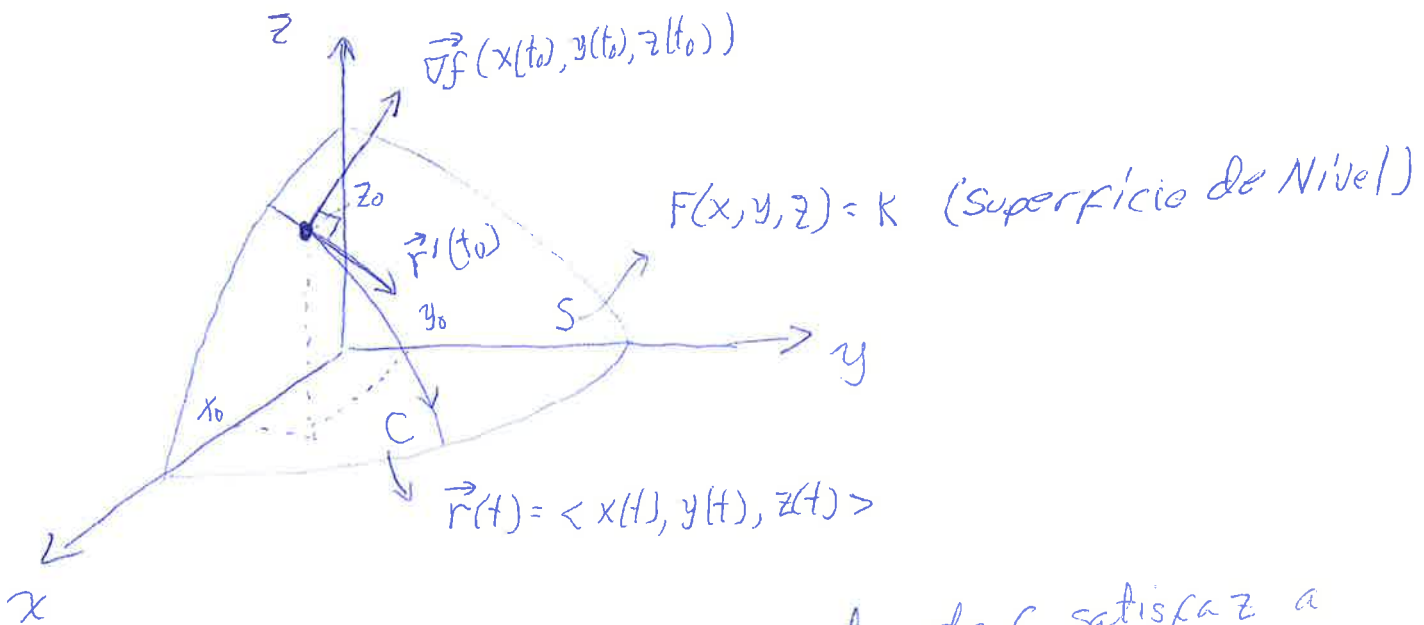 z
∇⃗f (x(t₀), y(t₀), z(t₀))
z₀
F(x,y,z) = K (Superfície de Nível)
r⃗'(t₀)
y₀
S
y
x₀
C
r⃗(t) = < x(t), y(t), z(t) >
x
de C satisfaz a